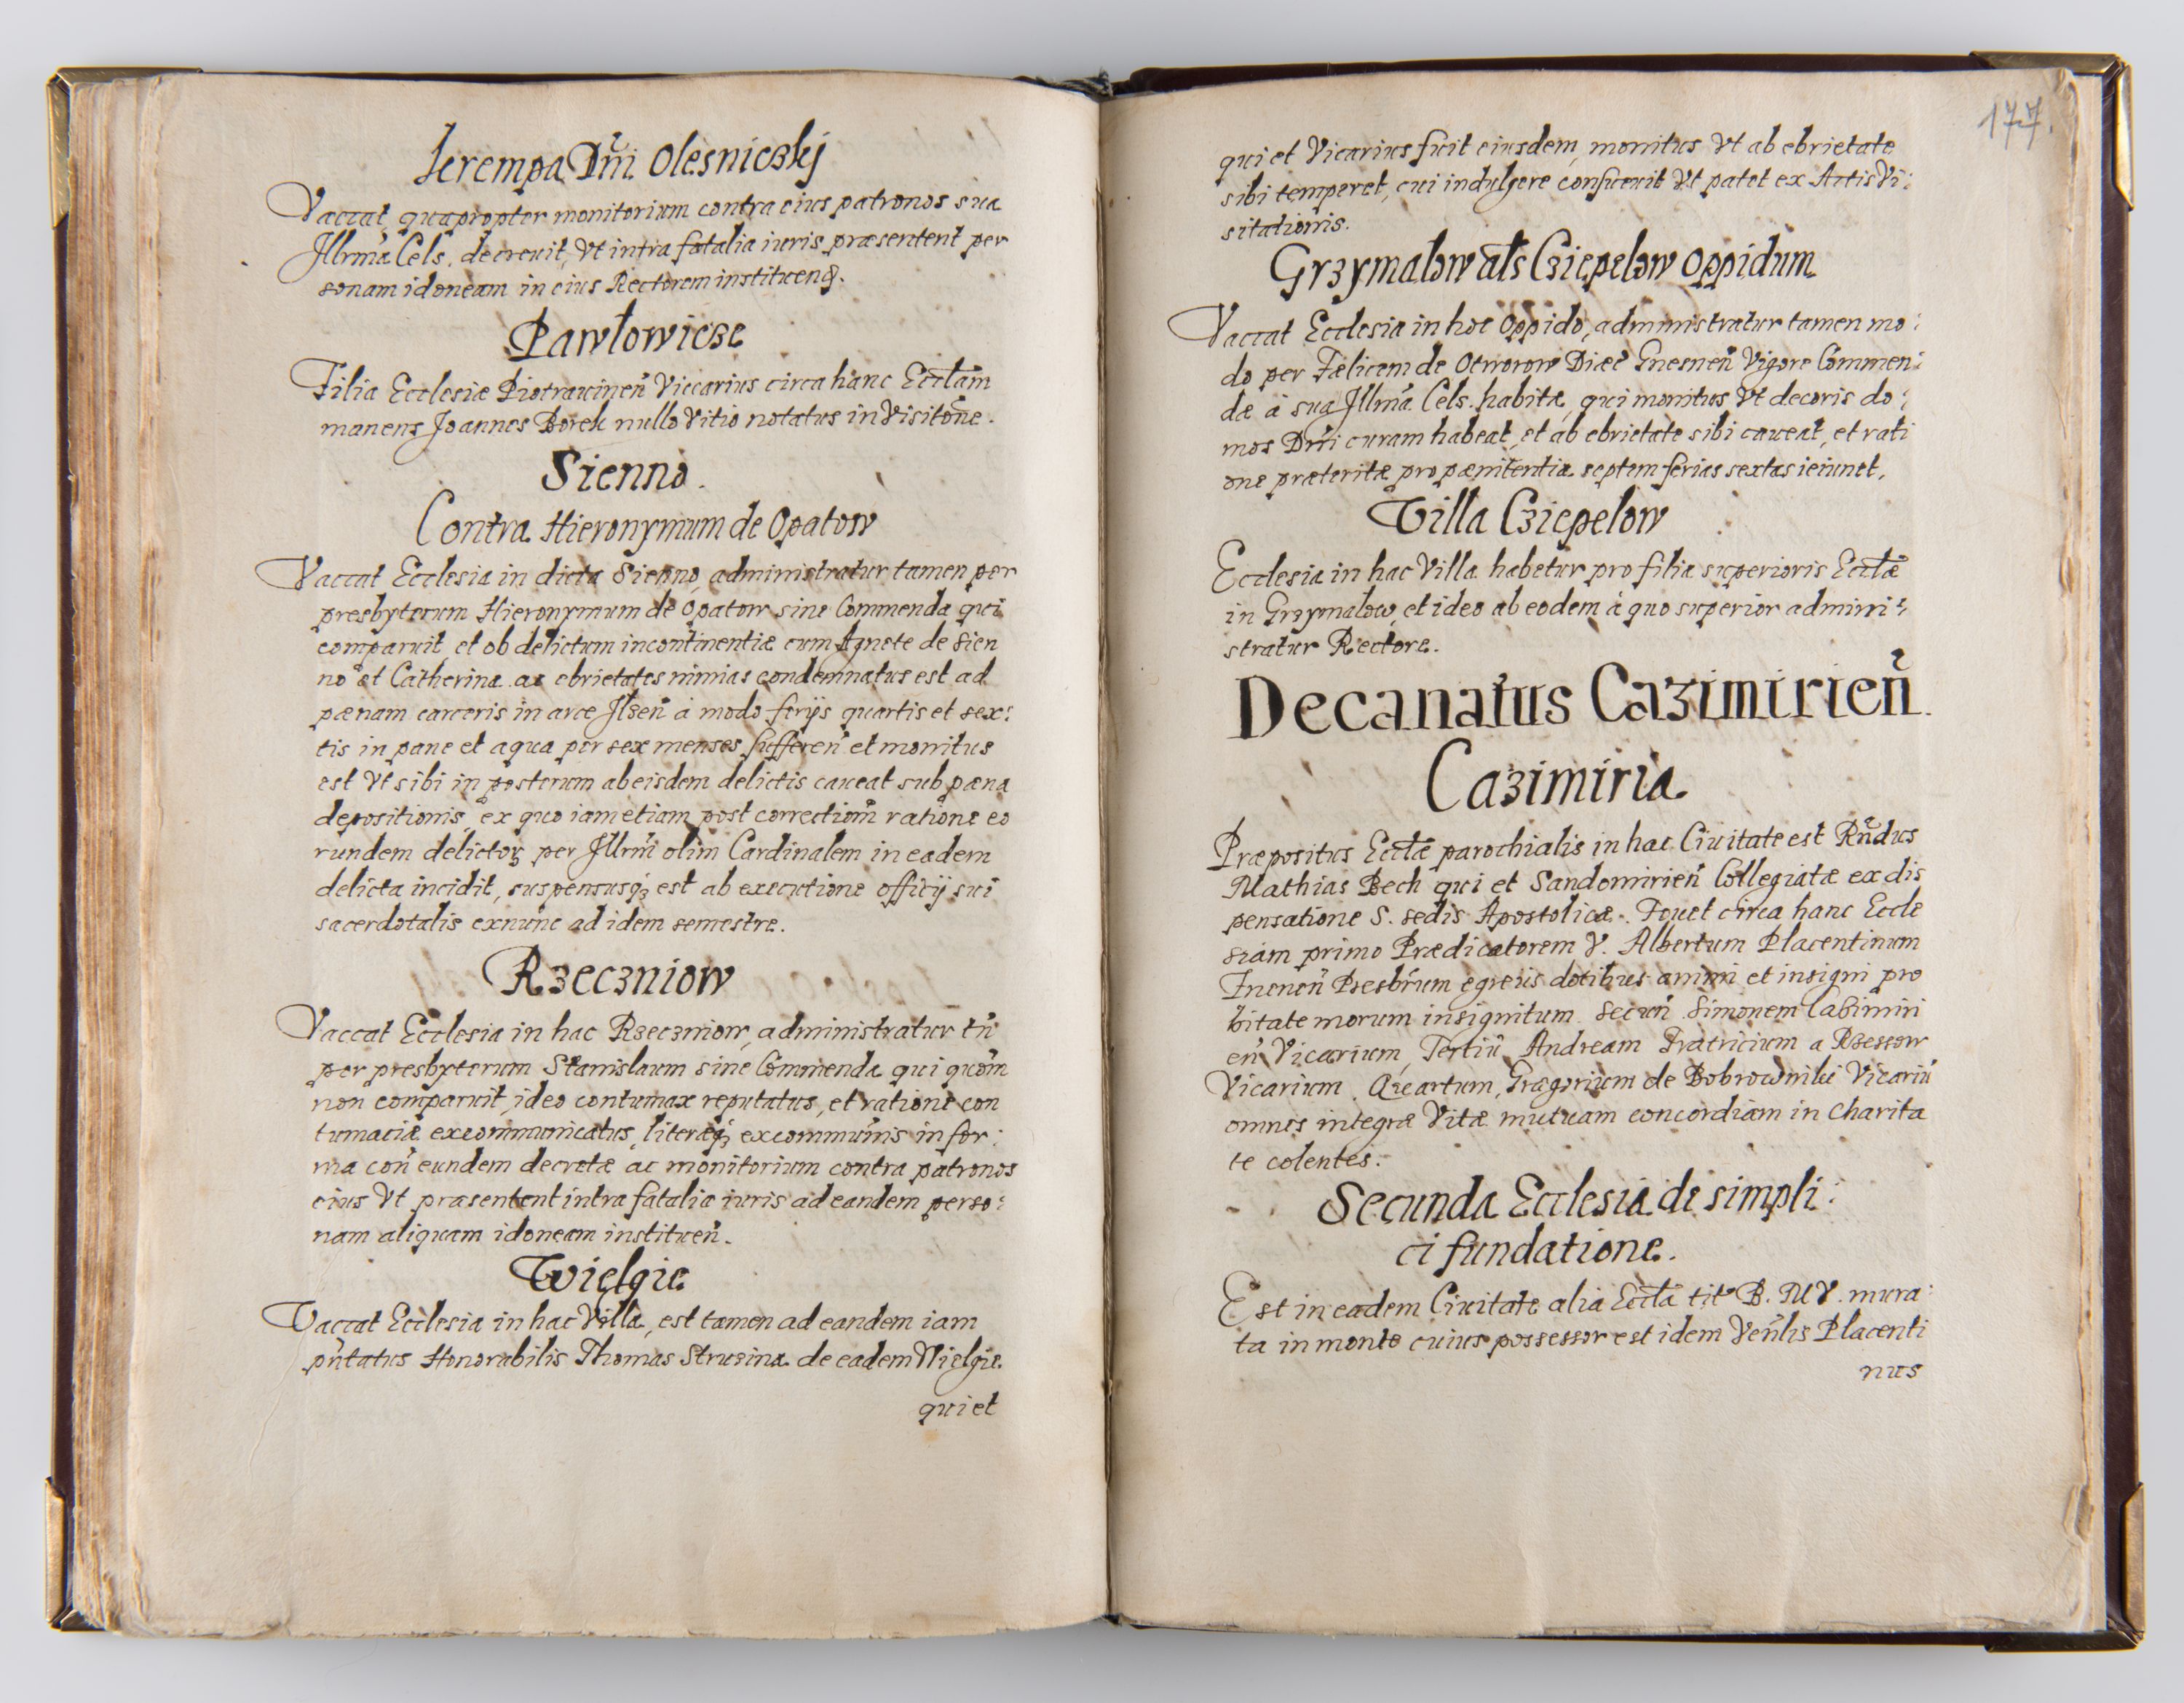 Ierempa Dñi Olesniczkij
Vaccat, quapropter monitorium contra eius patronos sua
Illrma Cels. decreuit, Vt intra fatalia iuris præsentent per
sonam idoneam in eius Rectorem instituend.
Pawłowicze
Filia Ecclesiæ Piotrauinen̄ Viccarius circa hanc Ecclam̄
manens Joannes Borek nullo Vitio notatus in Visitone.
Sienno.
Contra Hieronymum de Opatow
Vaccat Ecclesia in dicta Sienno, administratur tamen per
presbyterum Hieronymum de Opatow sine Commenda qui
comparuit, et ob delictum incontinentiæ cum Agnete de Sien
no et Catherina ac ebrietates nimias condemnatus est ad
pænam carceris in arce Ilzen̄ à modo ferijs quartis et sex:
tis in pane et aqua per sex menses sufferen̄ et monitus
est Vt sibi in posterum ab eisdem delictis caueat sub pæna
depositionis, ex quo iam etiam post correctiom̄ ratione eo
rundem delictoꝝ per Illrm̄ olim Cardinalem in eadem
delicta incidit, suspensusqȝ est ab executione officij sui
sacerdotalis exnunc ad idem semestre.
Rzeczniow
Vaccat Ecclesia in hac Rzeczniow, administratur tn̄
per presbyterum Stanislaum sine Commenda qui quom̄
non comparuit, ideo contumax reputatus, et ratione con
tumaciæ excommunicatus, literæqȝ excommunis in for:
ma con̄ eundem decretæ ac monitorium contra patronos
eius Vt præsentent intra fatalia iuris ad eandem perso:
nam aliquam idoneam instituen̄.
Wielgie
Vaccat Ecclesia in hac Villa, est tamen ad eandem iam
pn̄tatus Honorabilis Thomas Struzina de eadem Wielgie
qui et
177.
qui et Vicarius fuit eiusdem, monitus Vt ab ebrietate
sibi temperet, cui indulgere consueuit Vt patet ex Actis Vi:
sitationis.
Grzymalow als Cziepelow Oppidum
Vaccat Ecclesia in hoc Oppido, administratur tamen mo:
do per Fælicem de Otworow Diæc Gnesnen̄ Vigore Commen:
dæ à sua Illma Cels. habitæ, qui monitus Vt decoris do:
mos Dn̄i curam habeat, et ab ebrietate sibi caueat, et rati
one præteritæ pro pænitentia septem ferias sextas ieiunet.
Villa Cziepelow
Ecclesia in hac Villa habetur pro filia superioris Ecclæ
in Grzymalow, et ideo ab eodem à quo superior admini:
stratur Rectore.
Decanatus Cazimirien̄.
Cazimiria
Præpositus Ecclæ parochialis in hac Ciuitate est Rn̄dus
Mathias Bech qui et Sandomirien̄ Collegiatæ ex dis
pensatione S. sedis Apostolicæ. Fouet circa hanc Eccle
siam primo Prædicatorem V. Albertum Placentinum
Presbrum egregiis dotibus animi et insigni pro
bitate morum insignitum. Secun̄ Simonem Cazimiri
en̄ Vicarium, Tertiū Andream a Rzessow
Vicarium. Quartum, Grægorium de Bobrowniki Vicariū
omnes integræ Vitæ mutuam concordiam in Charita
te colentes.
Secunda Ecclesia de simpli:
ci fundatione.
Est in eadem Ciuitate alia Eccla tito B. M V. mura:
ta in monte cuius possessor est idem Ven̄lis Placenti
nus